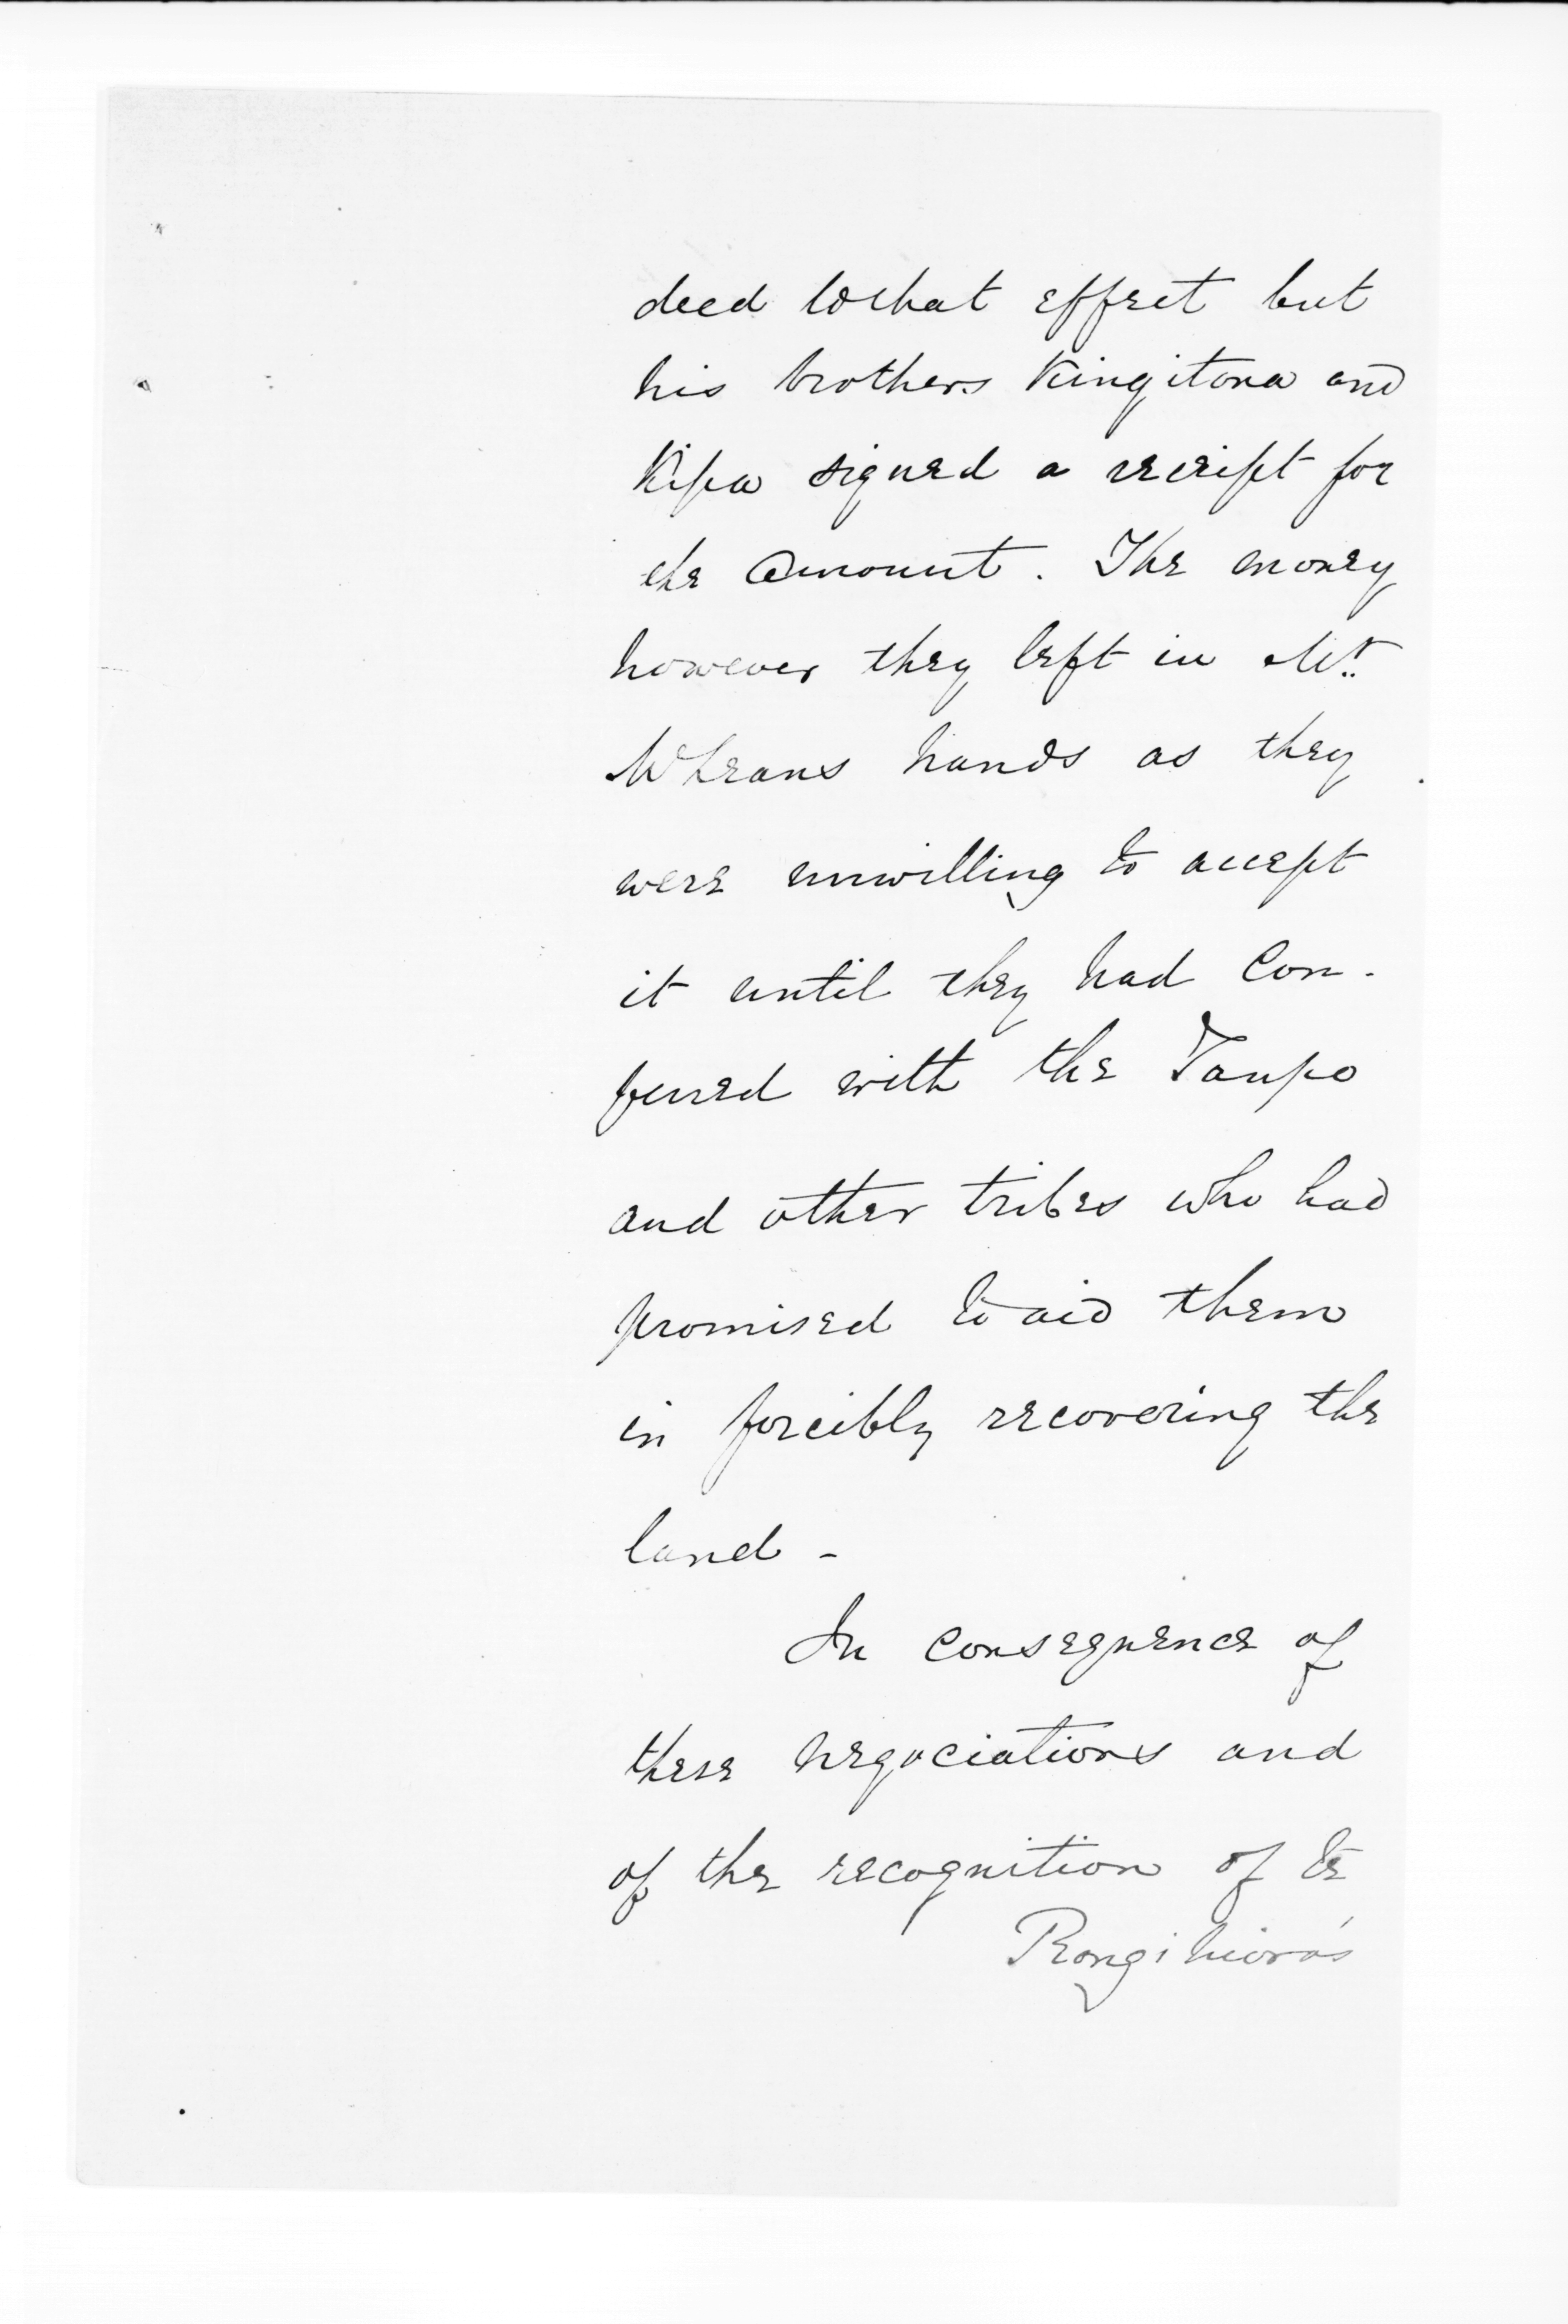 deed to that effect but
his brothers Kingitona and
Kipa signed a receipt for
the Amount. The money
however they left in Mr.
McLeans hands as they
were unwilling to accept
it until they had Con-
ferred with the Taupo
and other tribes who had
promised to aid them
in forcibly recovering the
land -
In consequence of
these negociations and
of the recognition of Te
Rangihiroa's